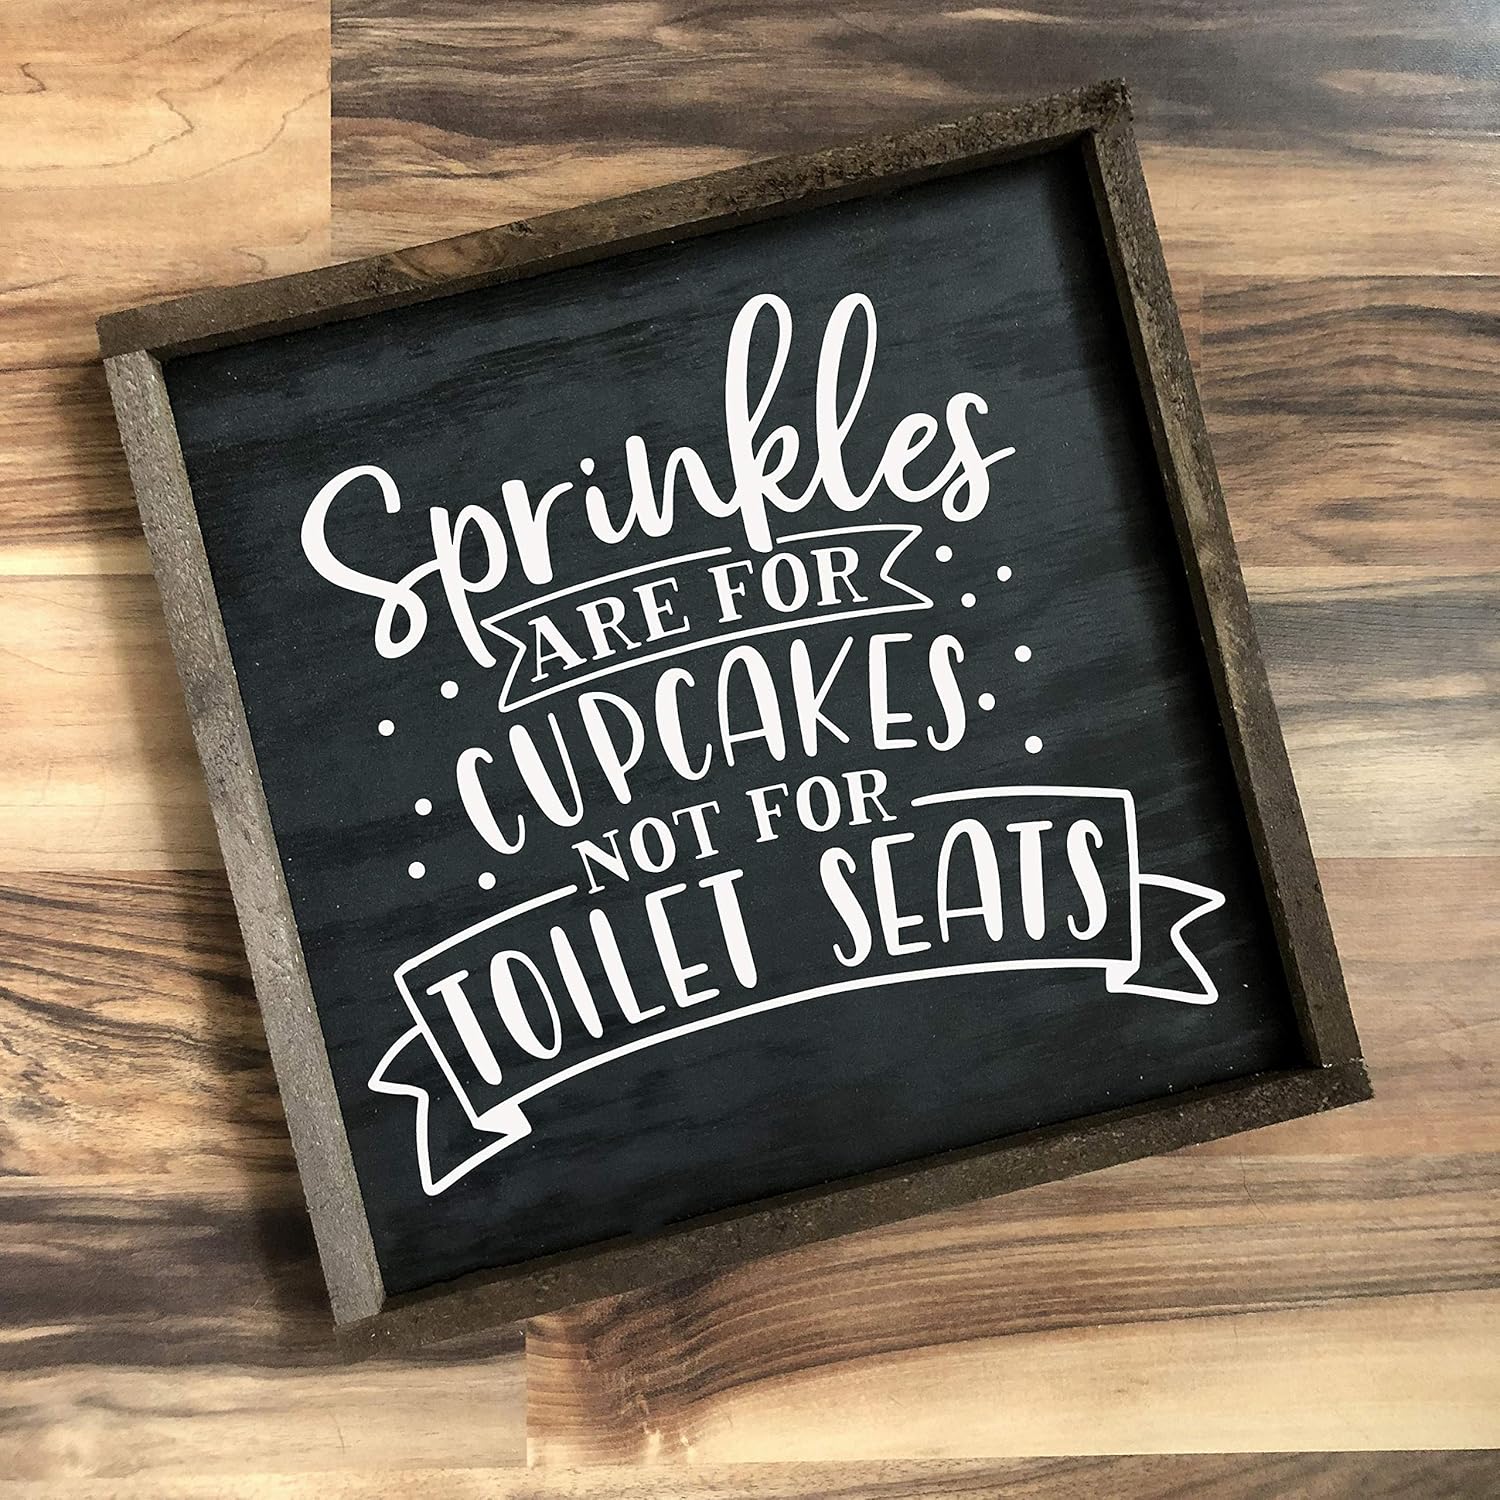 Sprinkles
ARE FOR
CUPCAKES
NOT FOR
TOILET SEATS